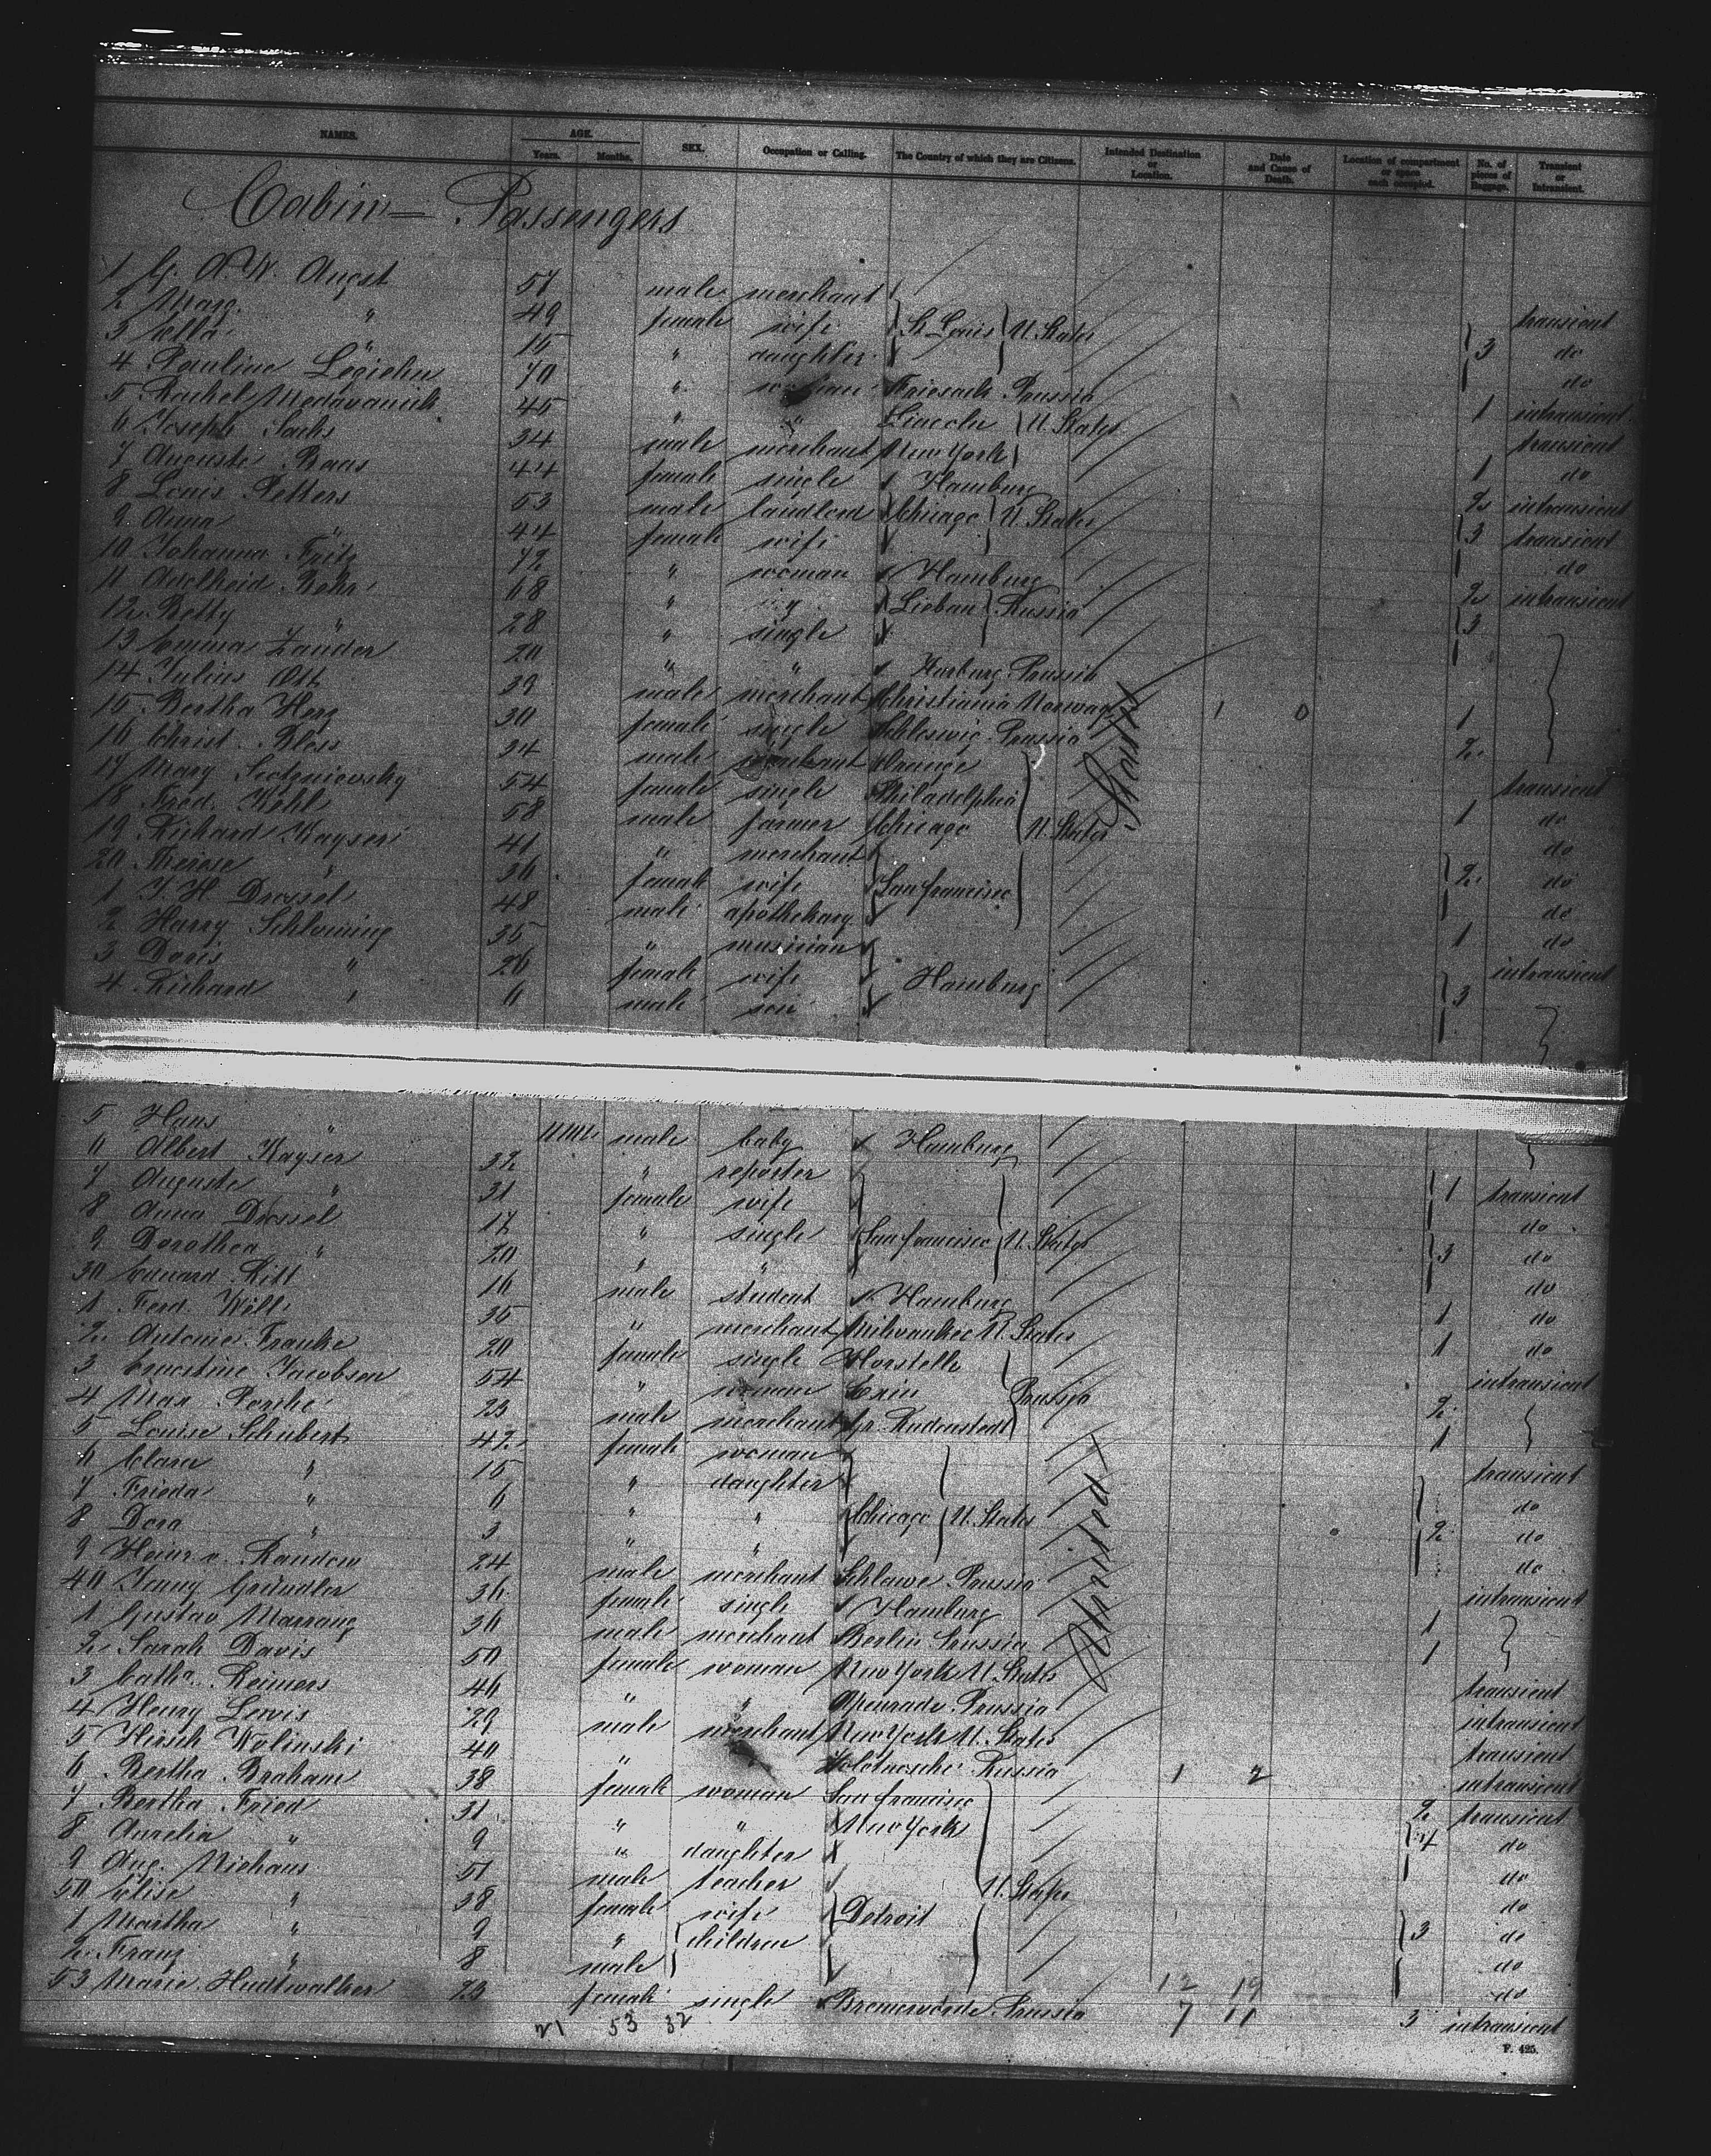 NAMES. AGE. Years. Months. SEX. Occupation or Calling. The Country of which they are Citizens. Intended Destination or Location. Date and Cause of Death. Location of compartment or space each occupied. No. of pieces of Baggage. Transient or Intransient.
Cabin - Passengers
1 G. A. W. Angst 57 male merchant
2 Marg. " 49 female wife St Louis U. States transient
3 Ella " 15 " daughter 3 do
4 Pauline 70 " woman Friesack Prussia do
5 Rachel 45 " " Lincoln U. States 1 intransient
6 Joseph Sachs 34 male merchant New York transient
7 Auguste Baus 44 female single Hamburg 1 do
8 Louis Petters 53 male landlord Chicago U. States 2 intransient
9 Anna " 44 female wife 3 transient
10 Johanna Fritz 72 " woman Hamburg do
11 Adelheid Behr 68 " Liebau Russia 2 intransient
12 Betty " 28 " single 3
13 Emma Zander 20 " " Harburg Prussia
14 Julius Ott 39 male merchant Christiania Norway 1 0 1
15 Bertha Herz 30 female single Schleswig Prussia 2
16 Christ. Bless 34 male merchant Orange
17 Mary 54 female single Philadelphia transient
18 Fred. Kohl 58 male farmer Chicago U. States 1 do
19 Richard Kayser 41 " merchant do
20 Therese " 30 female wife San francisco 2 do
1 J. H. Drossel 48 male apothekary do
2 Harry Schloming 35 " musician 1 do
3 Doris " 26 female wife Hamburg intransient
4 Richard " 6 male son 3
5 Hans " 11 male baby Hamburg
6 Albert Kayser 32 " reporter
7 Auguste " 31 female wife 1 transient
8 Anna Drossel 17 " single San francisco U. States do
9 Dorothea " 20 " " 3 do
30 Eduard Ritt 16 male student Hamburg do
1 Ferd. Will 35 " merchant Milwaukee U. States 1 do
2 Antonie Franke 20 female single Horstelle 1 do
3 Ernestine Jacobson 54 " woman Exin Prussia intransient
4 Max 23 male merchant Gr. Rudenstedt 2
5 Louise Schubert 42 female woman 1
6 Clara " 15 " daughter transient
7 Frieda " 6 " " Chicago U. States do
8 Dora " 3 " " 2 do
9 Heinr. v. Randow 24 male merchant Schlawe Prussia do
40 Jenny Gründler 36 female single Hamburg intransient
1 Gustav 30 male merchant Berlin Prussia 1
2 Sarah Davis 50 female woman New York U. States 1
3 Catha. Reimers 46 " " Apenrade Prussia transient
4 Henry Lewis 29 male merchant New York U. States intransient
5 Hirsch Wolinski 40 " Russia 1 2 transient
6 Bertha Braham 38 female woman San francisco intransient
7 Bertha Fried 31 " " New York 2 transient
8 Aurelia " 9 " daughter 4 do
9 Aug. Niehaus 51 male teacher U. States do
50 Elise " 38 female wife Detroit do
1 Martha " 9 " children 3 do
2 Franz " 8 male do
53 Marie Hudtwalker 23 female single Bremervörde Prussia 12 19 do
21 53 32 7 11 3 intransient
F. 425.